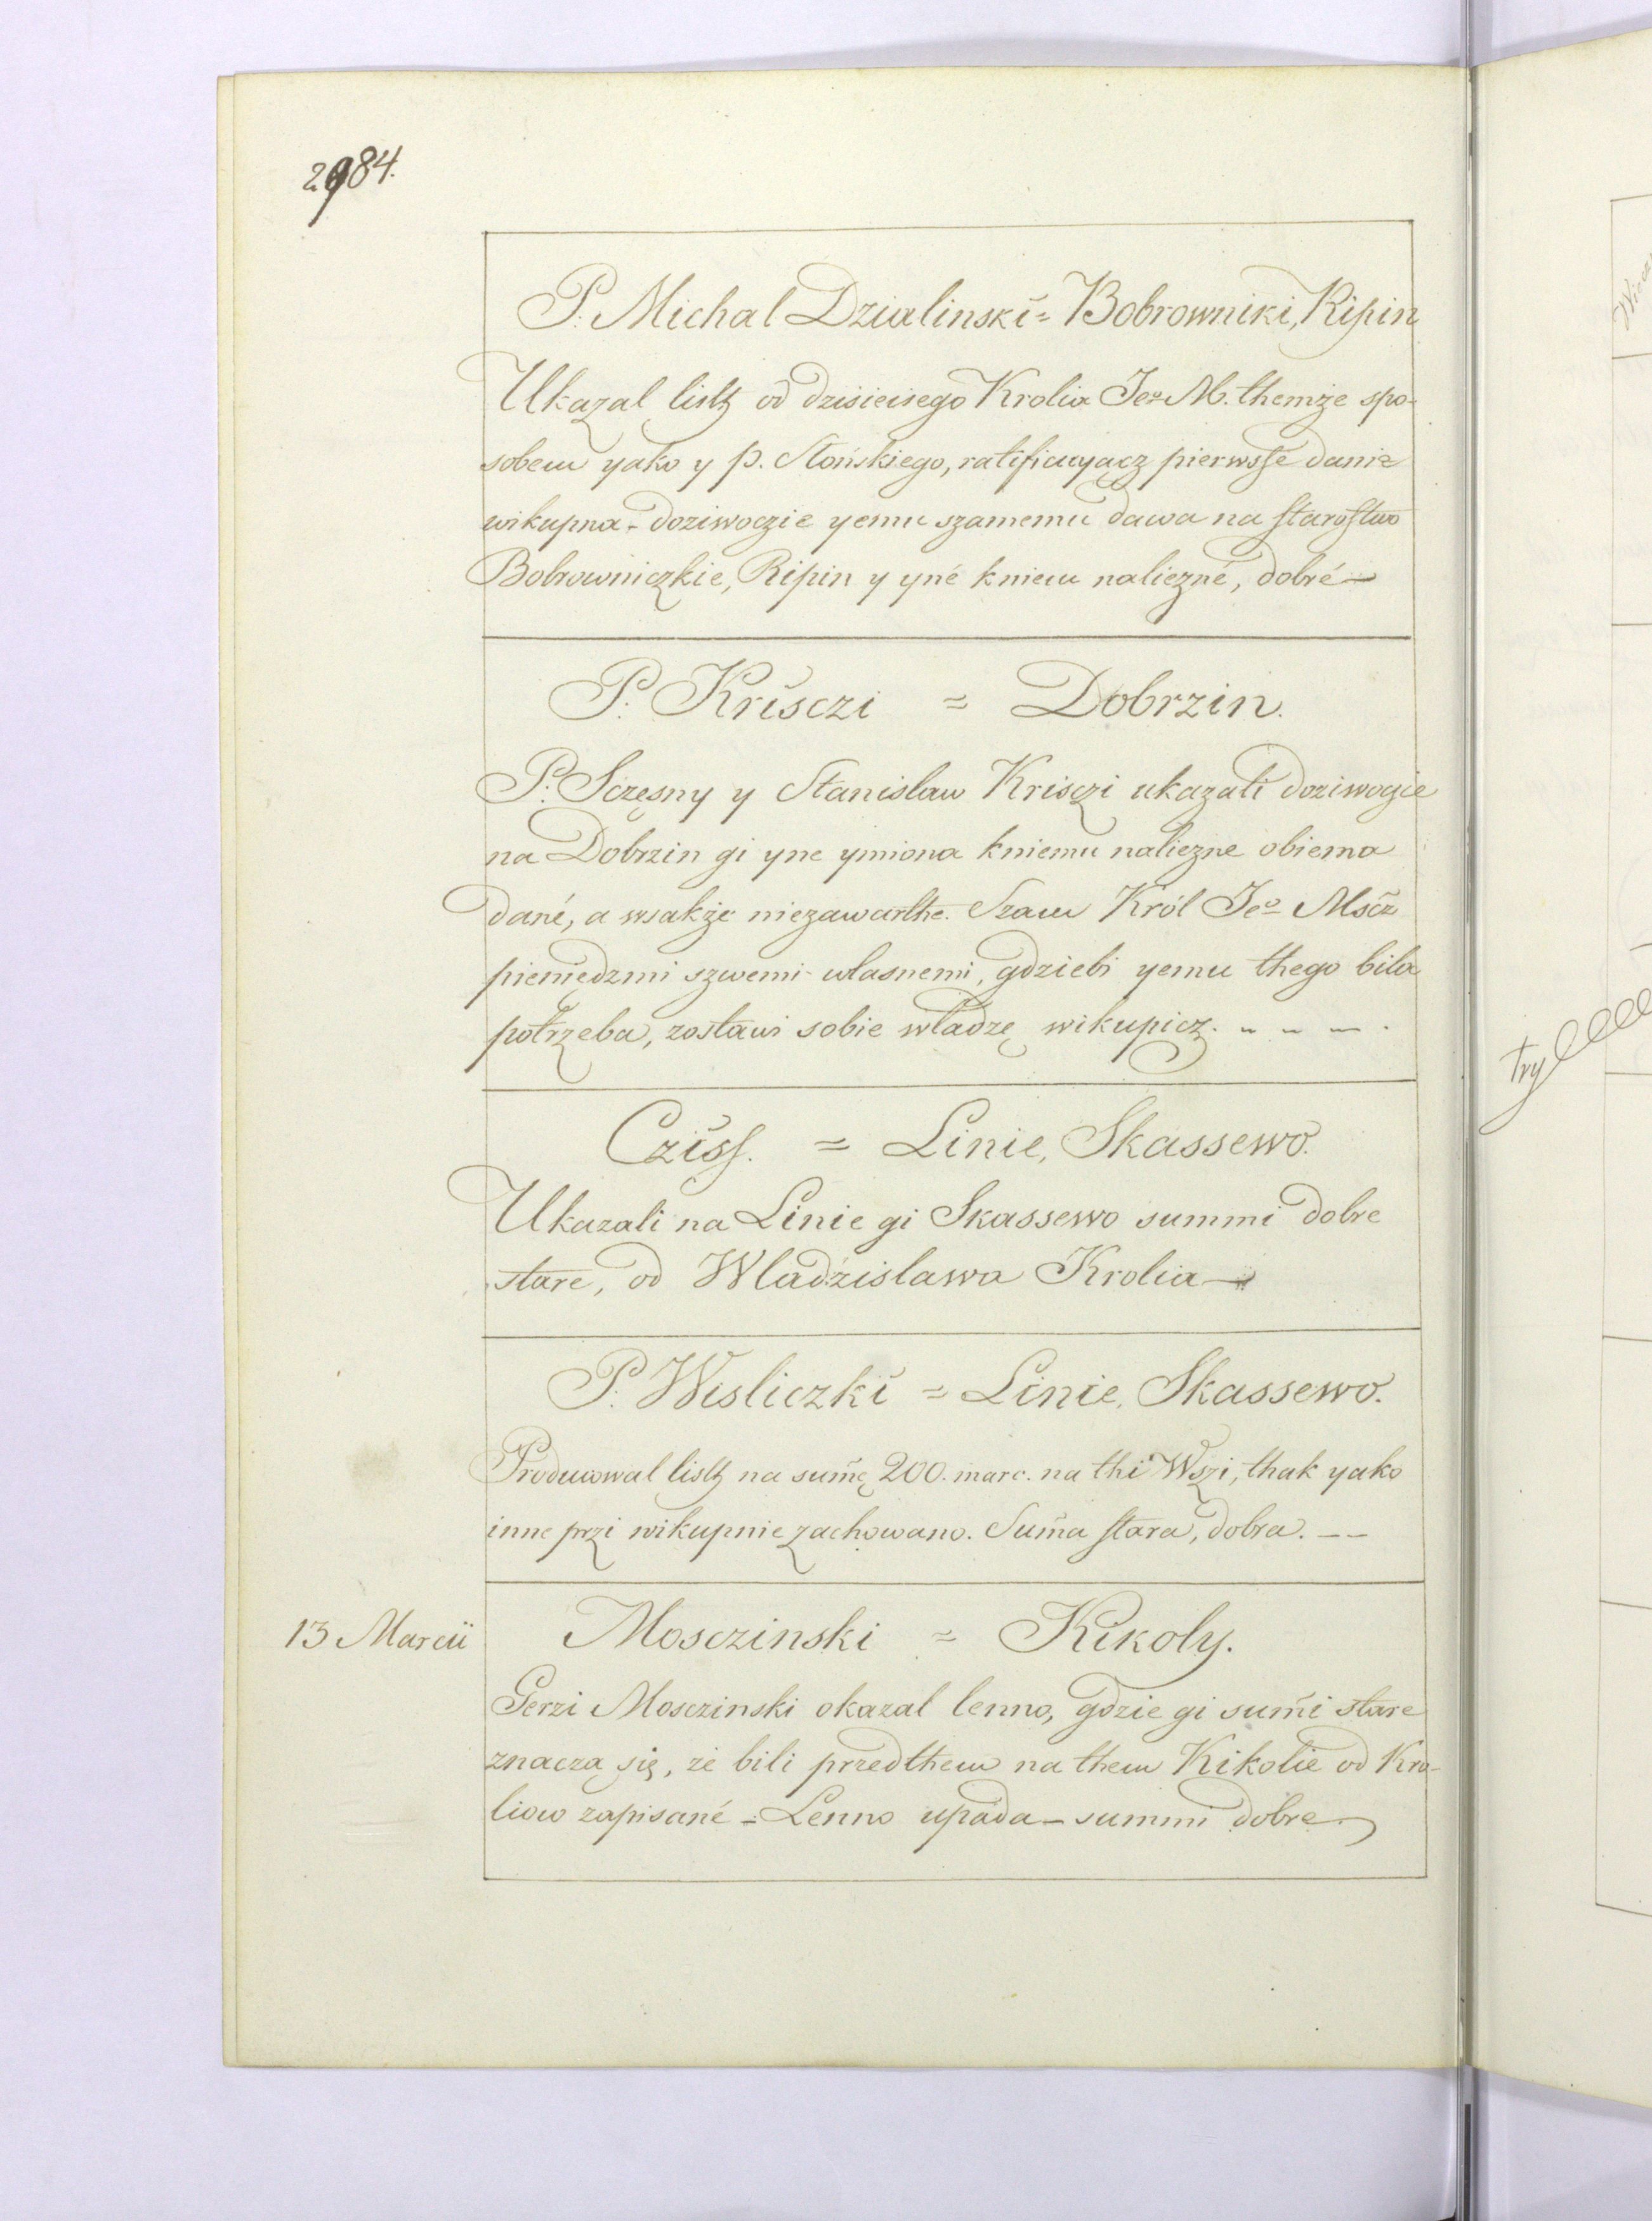 2984.
P. Michal Dzialinski = Bobrowniki, Ripin
Ukazal listh od dzisieisego Krolia Jeo M. themze spo-
sobem yako y p. Słońskiego, ratificuyącz pierwsſe danie
wikupna - doziwoczie yemu szamemu dawa na staroſtwo
Bobrowniczkie, Ripin y yné kniemu naliezné, dobré —
P. Krisczi = Dobrzin.
P. Sczęsny y Stanislaw Krisczi ukazali doziwocie
na Dobrzin gi yne ymiona kniemu naliezne obiema
dané, a wsakże niezawarthe. Szam Król Jeo Mścz
pieniędzmi szwemi własnemi, gdziebi yemu thego bila
potrzeba, zostawi sobie władzę wikupicz. - - - .
Czisſ. = Linie, Skassewo.
Ukazali na Linie gi Skassewo summi dobre
stare, od Wladzislawa Krolia —
P. Wisliczki = Linie, Skassewo.
Producowal listh na sum̃ę 200. marc. na thi Wszi, thak yako
inne przi wikupnie zachowano. Sum̃a stara, dobra. — —
13 Marcii
Mosczinski = Kikoly.
Gerzi Mosczinski okazal lenno, gdzie gi sum̃i stare
znacza się, ze bili przedthem na them Kikolie od Kro-
liow zapisané = Lenno upáda - summi dobre
try